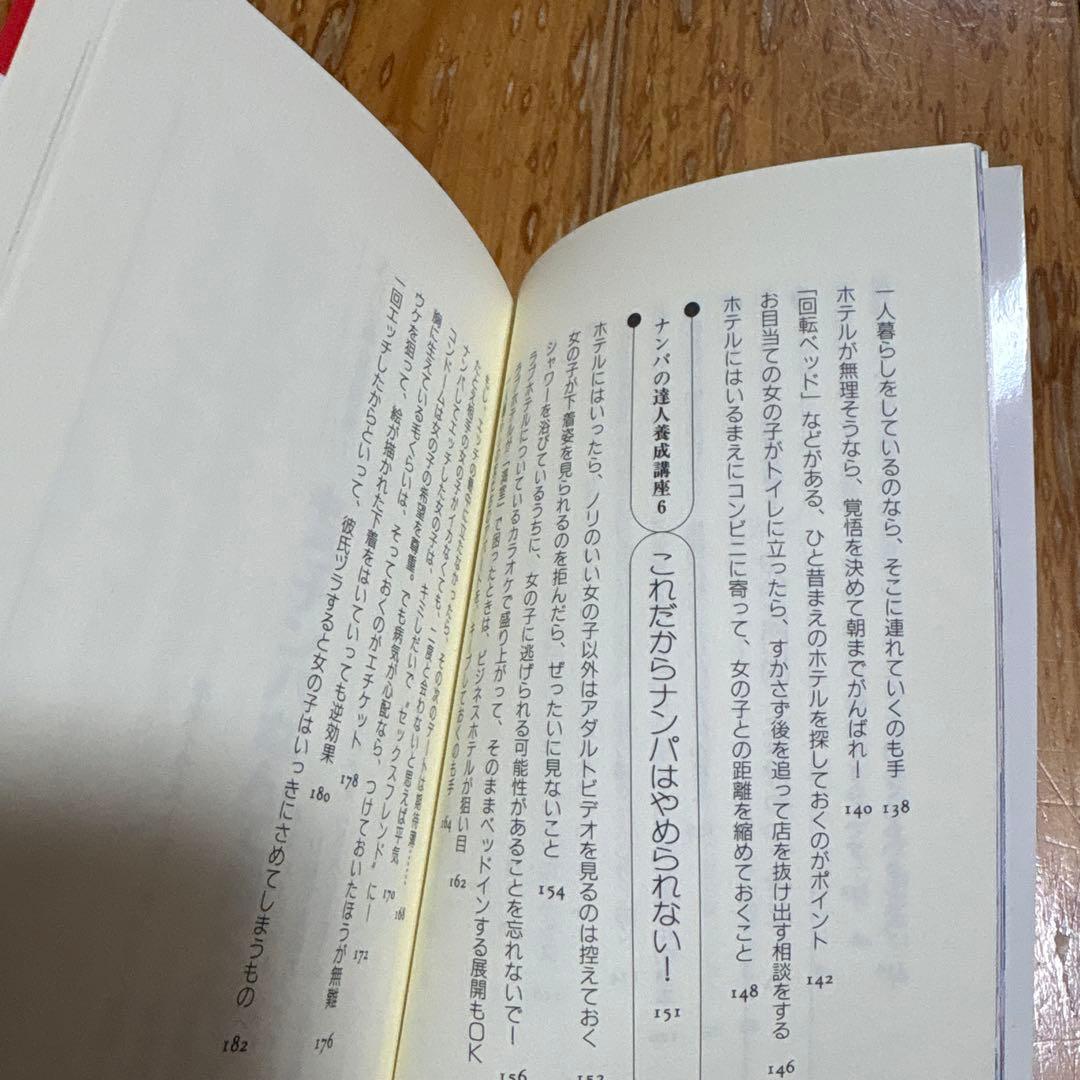 一人暮らしをしているのなら、そこに連れていくのも手 138
ホテルが無理そうなら、覚悟を決めて朝までがんばれ！ 140
「回転ベッド」などがある、ひと昔まえのホテルを探しておくのがポイント 142
お目当ての女の子がトイレに立ったら、すかさず後を追って店を抜け出す相談をする 146
ホテルにはいるまえにコンビニに寄って、女の子との距離を縮めておくこと 148
ナンパの達人養成講座6 これだからナンパはやめられない！ 151
ホテルにはいったら、ノリのいい女の子以外はアダルトビデオを見るのは控えておく 152
女の子が下着姿を見られるのを拒んだら、ぜったいに見ないこと 154
シャワーを浴びているうちに、女の子に逃げられる可能性があることを忘れないでー 156
ラブホテルについているカラオケで盛り上がって、そのままベッドインする展開もOK
ラブホテルが「満室」で困ったときは、ビジネスホテルが狙い目 162
プしておくのも手 164
その次のデートは期待薄…… 168
たとえ相手の女の子がイカなくても、二度と会わないと思えば平気 170
ナンパしてエッチした女の子は、キミしだいで“セックスフレンド”にー 172
コンドームは女の子の希望を尊重。でも病気が心配なら、つけておいたほうが無難 176
胸に生えている毛くらいは、そっておくのがエチケット 178
ウケを狙って、絵が描かれた下着をはいていっても逆効果 180
一回エッチしたからといって、彼氏ヅラすると女の子はいっきにさめてしまうもの 182